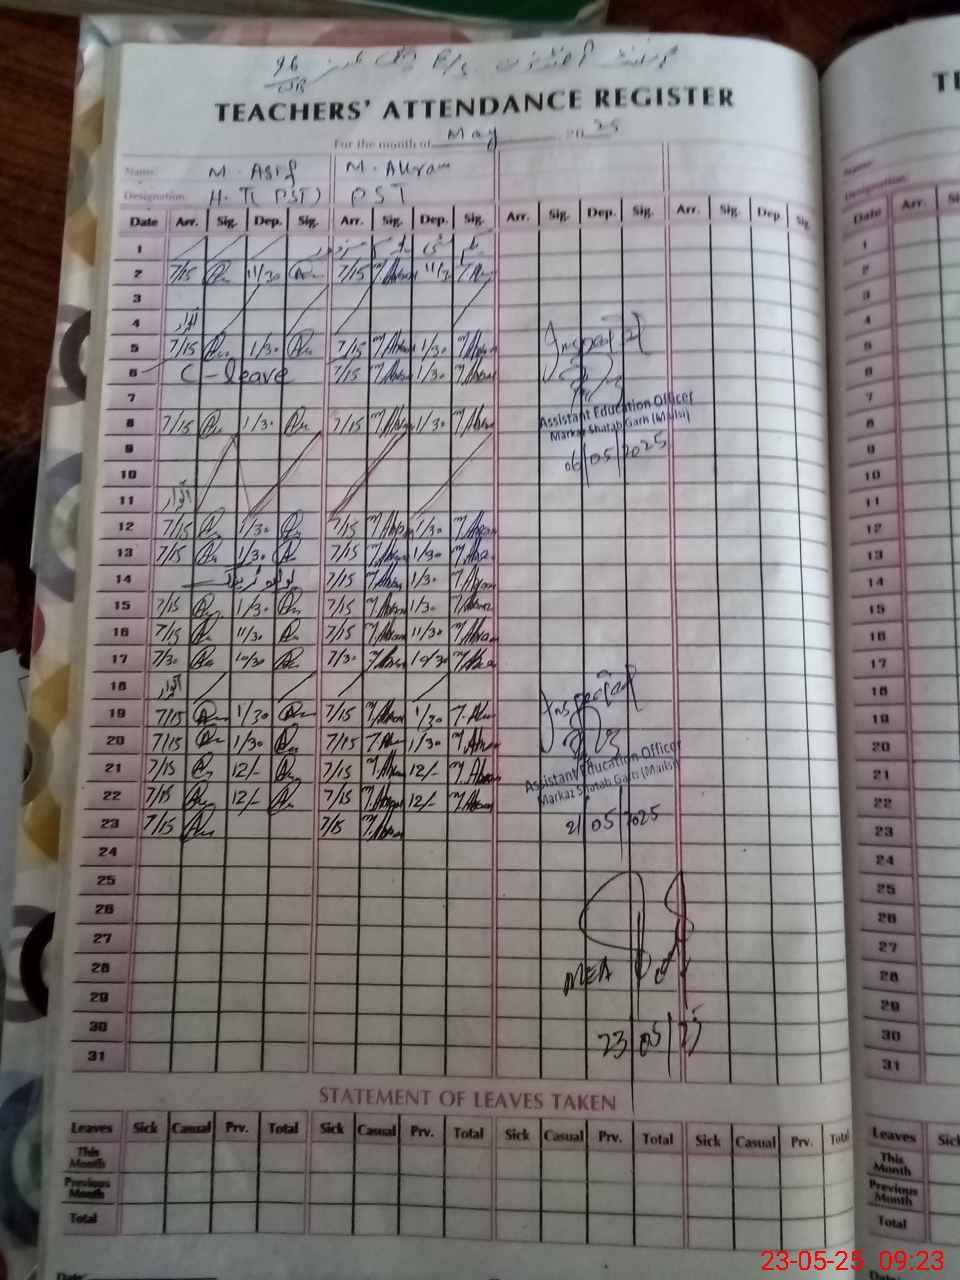 96
TEACHERS' ATTENDANCE REGISTER
For the month of May 2025
Name: M. Asif M. Akram
Designation: H.T(PST) PST
Date Arr. Sig. Dep. Sig. Arr. Sig. Dep. Sig. Arr. Sig. Dep. Sig. Arr. Sig. Dep. Sig.
1
2 7/15 11/30 7/15 M.Akram 11/30
3
4 اتوار
5 7/15 1/30 7/15 M.Akram 1/30 M.Akram
6 C-leave 7/15 M.Akram 1/30 M.Akram
7
8 7/15 1/30 7/15 M.Akram 1/30 M.Akram
9
10
11 اتوار
12 7/15 1/30 7/15 M.Akram 1/30 M.Akram
13 7/15 1/30 7/15 M.Akram 1/30 M.Akram
14 7/15 M.Akram 1/30 M.Akram
15 7/15 1/30 7/15 M.Akram 1/30 M.Akram
16 7/15 11/30 7/15 M.Akram 11/30 M.Akram
17 7/30 10/30 7/30 M.Akram 10/30 M.Akram
18 اتوار
19 7/15 1/30 7/15 M.Akram 1/30
20 7/15 1/30 7/15 1/30 M.Akram
21 7/15 12/- 7/15 M.Akram 12/- M.Akram
22 7/15 12/- 7/15 M.Akram 12/- M.Akram
23 7/15 7/15 M.Akram
24
25
26
27
28
29
30
31
Inspected
Assistant Education Officer
Markaz Shatab Garh (Mailsi)
06/05/2025
Inspected
Assistant Education Officer
Markaz Shatab Garh (Mailsi)
21/05/2025
MEA
23/05/25
STATEMENT OF LEAVES TAKEN
Leaves Sick Casual Prv. Total Sick Casual Prv. Total Sick Casual Prv. Total Sick Casual Prv. Total
This Month
Previous Month
Total
Date
TE
Name:
Designation:
Date Arr. Si
1
2
3
4
5
6
7
8
9
10
11
12
13
14
15
16
17
18
19
20
21
22
23
24
25
26
27
28
29
30
31
Leaves Sick
This Month
Previous Month
Total
Date
23-05-25 09:23